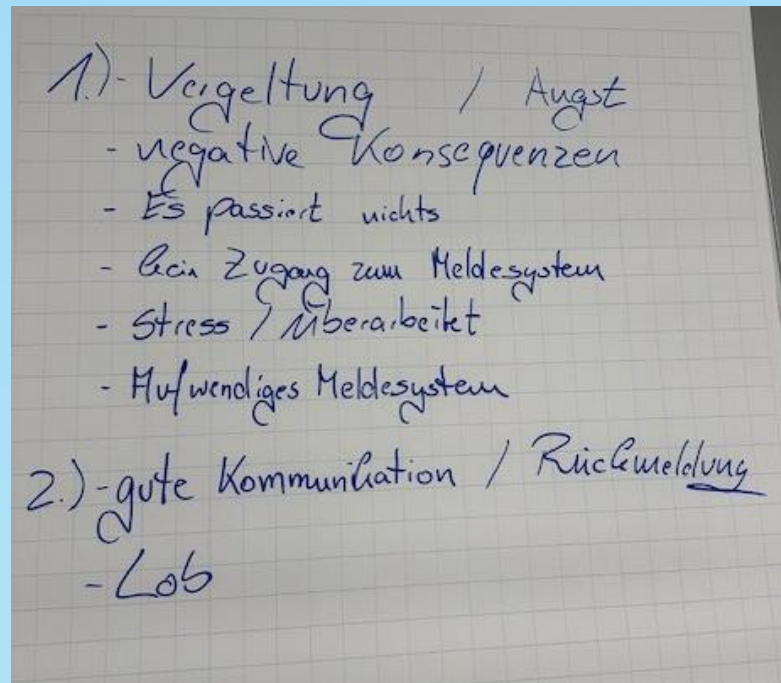 1.) - Vergeltung / Angst
- negative Konsequenzen
- Es passiert nichts
- kein Zugang zum Meldesystem
- Stress / Überarbeitet
- Aufwendiges Meldesystem
2.) - gute Kommunikation / Rückmeldung
- Lob